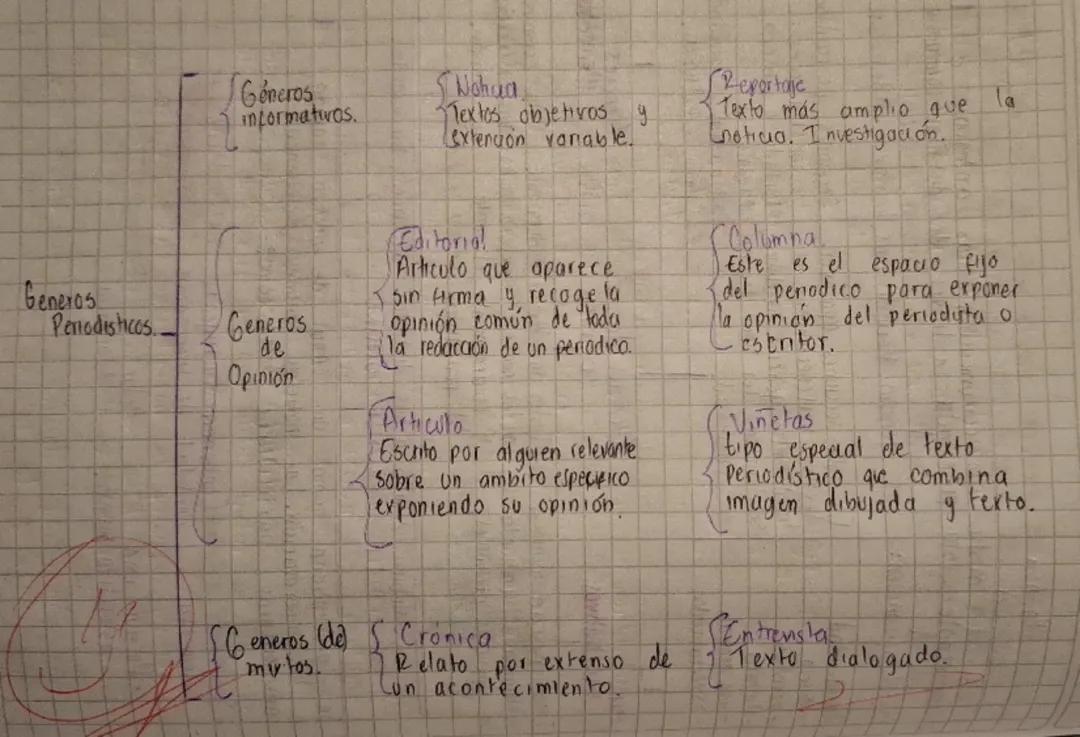 Generos
Periodisticos.
Géneros
informativos.
Noticia
Textos objetivos y
extención variable.
Reportaje
Texto más amplio que la
noticia. Investigación.
Generos
de
Opinión
Editorial
Articulo que aparece
sin firma y recoge la
opinión común de toda
la redacción de un periodico.
Columna
Este es el espacio fijo
del periodico para exponer
la opinión del periodista o
escritor.
Articulo
Escrito por alguien relevante
sobre un ambito especifico
exponiendo su opinión.
Viñetas
tipo especial de texto
Periodístico que combina
imagen dibujada y texto.
Generos (de)
mixtos.
Crónica
Relato por extenso de
un acontecimiento.
Entrevista
Texto dialogado.